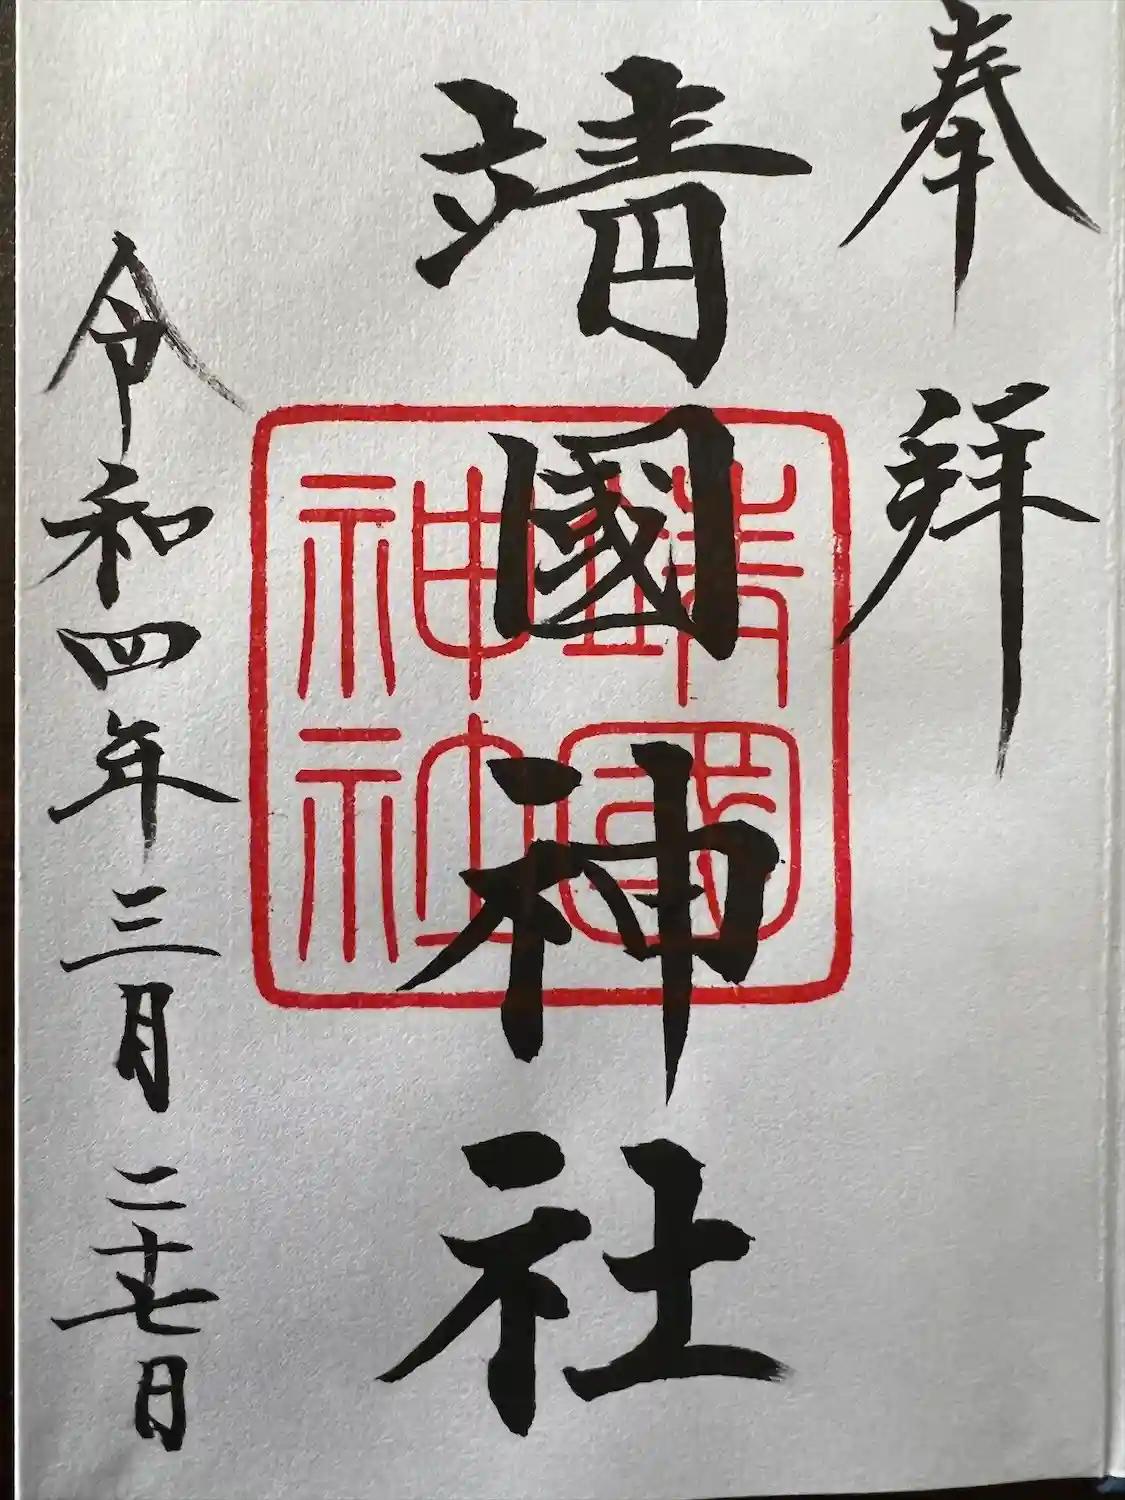 奉拜
靖國神社
靖國
神社
令和四年三月二十七日